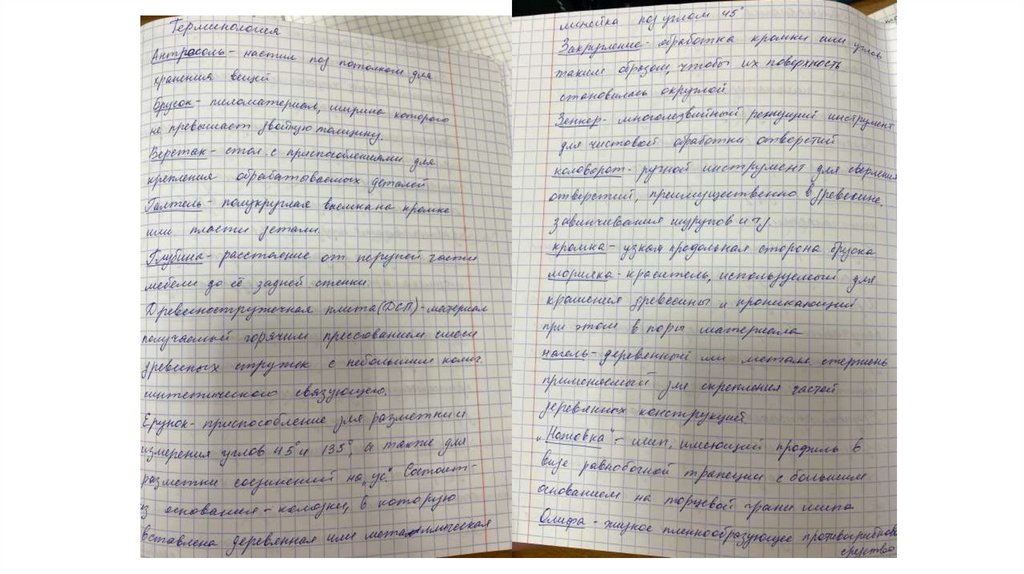 Терминология
Антрасоль - настил под потолком для
хранения вещей
Брусок - пиломатериал, ширина которого
не превышает двойную толщину.
Верстак - стол с приспособлениями для
крепления обрабатываемых деталей
Галтель - полукруглая выемка на кромке
или пласти детали.
Глубина - расстояние от передней части
мебели до её задней стенки
Древесностружечная плита (ДСП) - материал
получаемый горячим прессованием смеси
древесных стружек с небольшим колич.
синтетического связующего.
Ерунок - приспособление для разметки и
измерения углов 45° и 135°, а также для
разметки соединений на "ус". Состоит -
из основания - колодки, в которую
вставлена деревянная или металлическая
линейка под углом 45°
Закругление - обработка кромки или углов
таким образом, чтобы их поверхность
становилась округлой
Зенкер - многолезвийный режущий инструмент
для чистовой обработки отверстий
коловорот - ручной инструмент для сверления
отверстий, преимущественно в древесине,
завинчивания шурупов и т.д.
кромка - узкая продольная сторона бруска
морилка - краситель, используемый для
крашения древесины и проникающий
при этом в поры материала
нагель - деревянный ли металл стержень
применяемый для скрепления частей
деревянных конструкций.
"Натовка" - шип, имеющий профиль в
виде равнобочной трапеции с большим
основанием на торцевой грани шипа
Олифа - жидкое пленнообразующее противогрибковое
средство